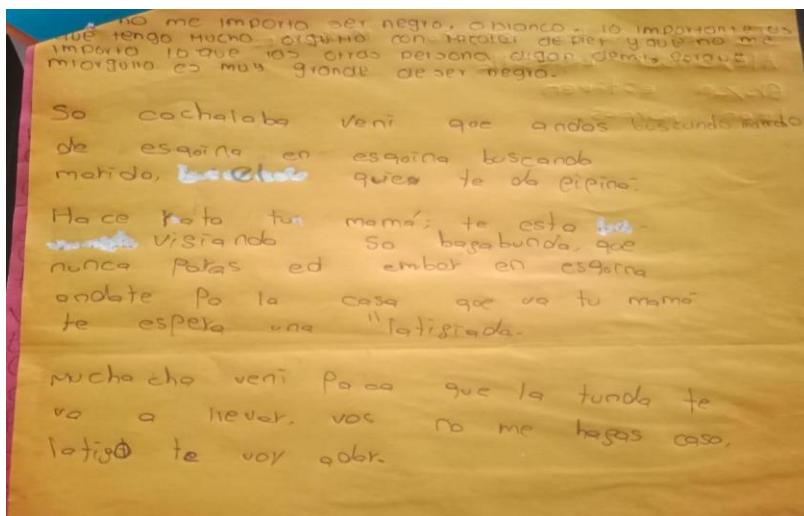 no me importo ser negro, o blanco. lo importante es
que tengo mucho orgullo con mi color de piel y que no me
importo lo que las otras persona digan demi, porque
mi orgullo es muy grande de ser negro.
So cochaloba veni que andas buscando marido
de esqoina en esqoina buscando
marido, quien te da pipino.
Hace rato tun mamá; te esta
visiando so bagabunda, que
nunca paras ed embor en esqoina
andate Po la casa que va tu mamá
te espera una "latigiada.
Muchacho veni Pa ca que la tunda te
va a llevar. vos no me hagas caso,
latigo te voy a dar.